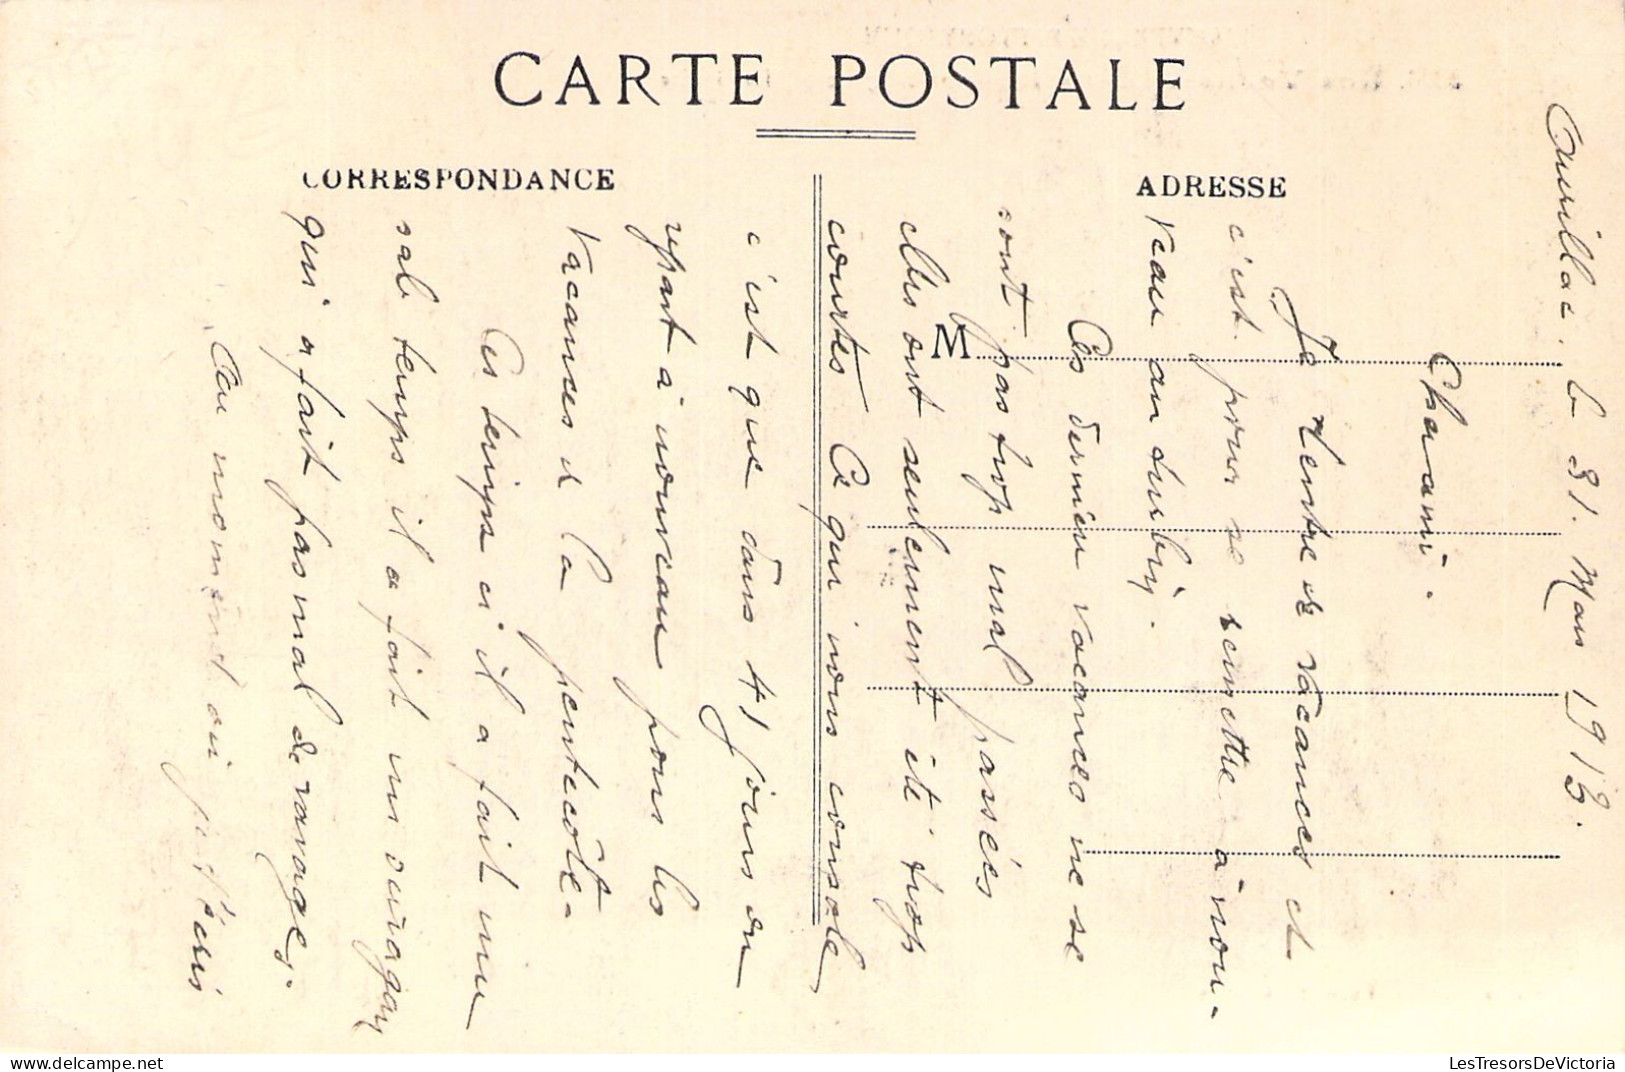 CARTE POSTALE
CORRESPONDANCE
ADRESSE
M
Aurillac. le 31. Mars 1913.
Cher ami.
Je rentre de vacances et
c'est pour se remettre à nou-
veau au turbin.
Ces dernières vacances ne se
sont pas trop mal passées
elles ont seulement été trop
courtes Ce qui nous console
c'est que dans 41 jours on
repart à nouveau pour les
vacances de la pentecôte.
Ces temps ci il a fait un
sale temps il a fait un ouragan
qui a fait pas mal de ravages.
Au moment où je t'écris
LesTresorsDeVictoria.com